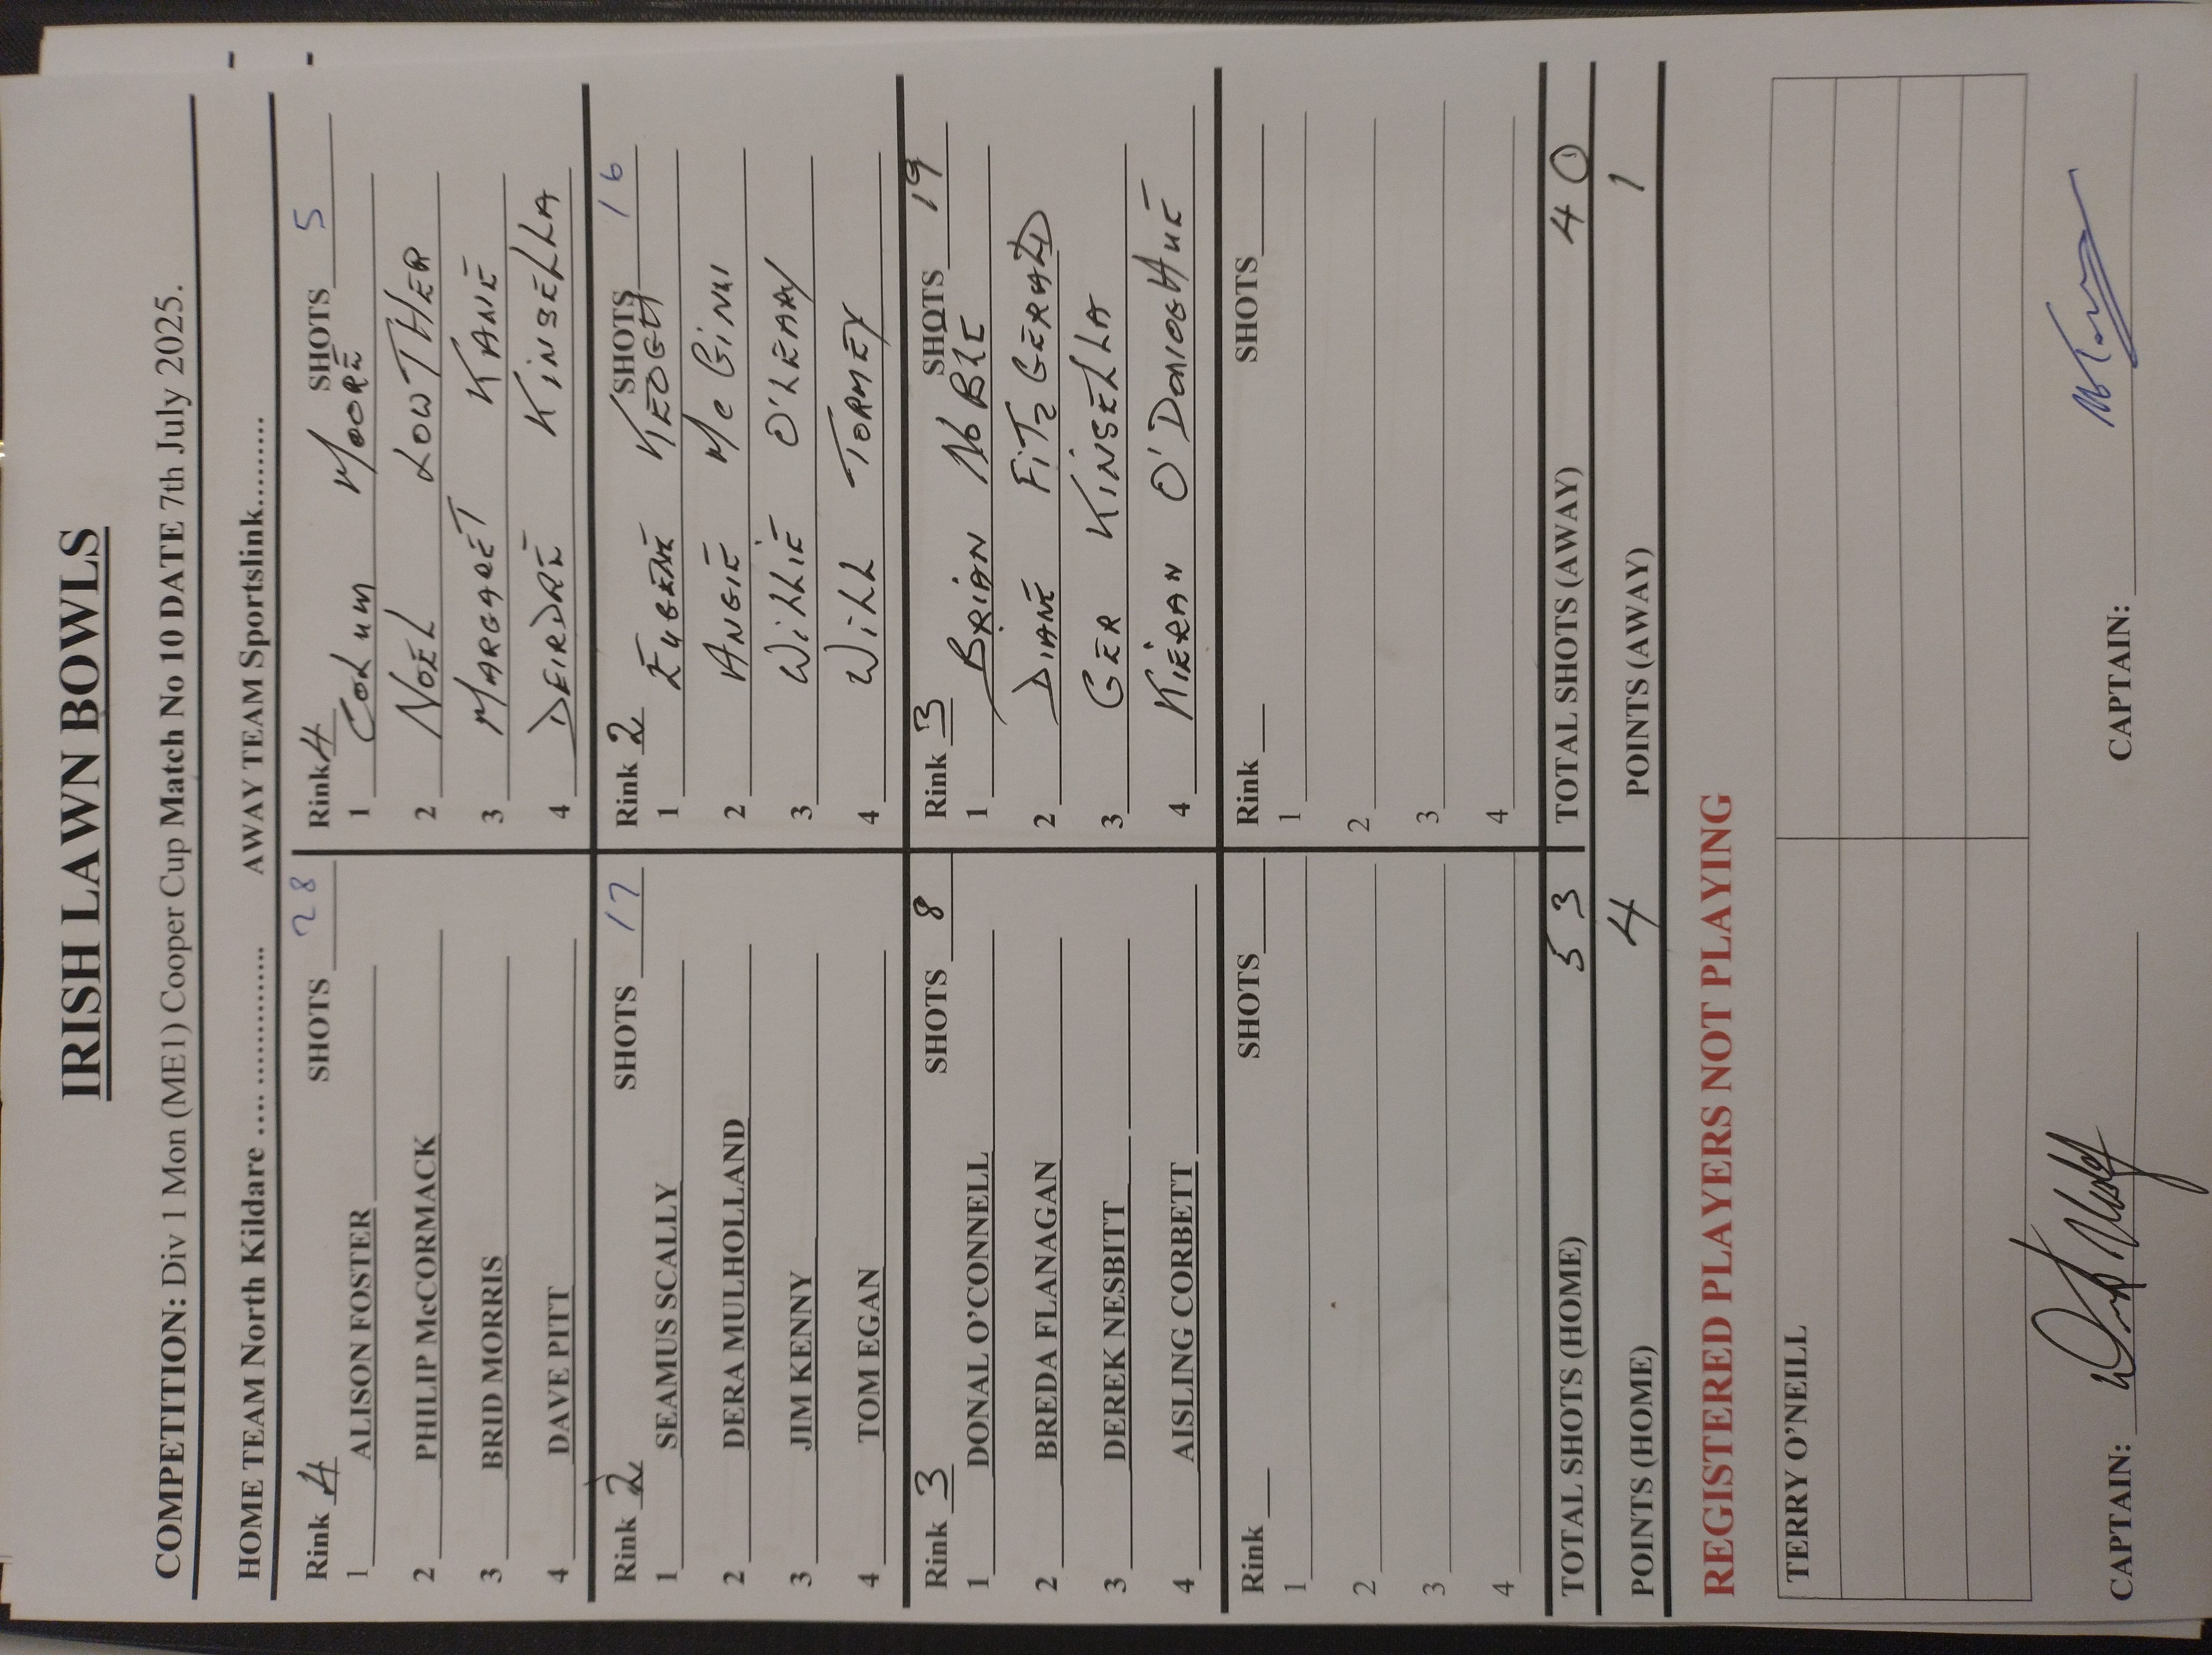 IRISH LAWN BOWLS
COMPETITION: Div 1 Mon (ME1) Cooper Cup Match No 10 DATE 7th July 2025.
HOME TEAM North Kildare .... .............. AWAY TEAM Sportslink.........
Rink 4 SHOTS 28
1 ALISON FOSTER
2 PHILIP McCORMACK
3 BRID MORRIS
4 DAVE PITT
Rink 4 SHOTS 5
1 COLUM MOORE
2 NOEL LOWTHER
3 MARGARET KANE
4 DEIRDRE KINSELLA
Rink 2 SHOTS 17
1 SEAMUS SCALLY
2 DERA MULHOLLAND
3 JIM KENNY
4 TOM EGAN
Rink 2 SHOTS 16
1 EUGENE KEOGH
2 ANGIE McGINN
3 WILLIE O'LEARY
4 WILL TORMEY
Rink 3 SHOTS 8
1 DONAL O'CONNELL
2 BREDA FLANAGAN
3 DEREK NESBITT
4 AISLING CORBETT
Rink 3 SHOTS 19
1 BRIAN NOBLE
2 DIANE FITZGERALD
3 GER KINSELLA
4 KIERAN O'DONOGHUE
Rink __ SHOTS
1
2
3
4
Rink __ SHOTS
1
2
3
4
TOTAL SHOTS (HOME) 53 TOTAL SHOTS (AWAY) 40
POINTS (HOME) 4 POINTS (AWAY) 1
REGISTERED PLAYERS NOT PLAYING
TERRY O'NEILL
CAPTAIN: CAPTAIN: